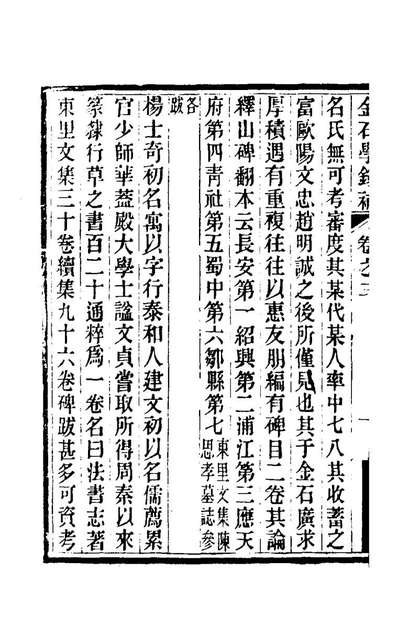 金石學錄補 卷之三 一
名氏無可考審度其某代某人率中七八其收蓄之
富歐陽文忠趙明誠之後所僅見也其于金石廣求
厚積遇有重複往往以惠友朋編有碑目二卷其論
繹山碑翻本云長安第一紹興第二浦江第三應天
府第四青社第五蜀中第六鄒縣第七東里文集陳思孝墓誌參
各跋
楊士奇初名寓以字行泰和人建文初以名儒薦累
官少師華蓋殿大學士諡文貞嘗取所得周秦以來
篆隸行草之書百二十通粹為一卷名曰法書志著
東里文集三十卷續集九十六卷碑跋甚多可資考